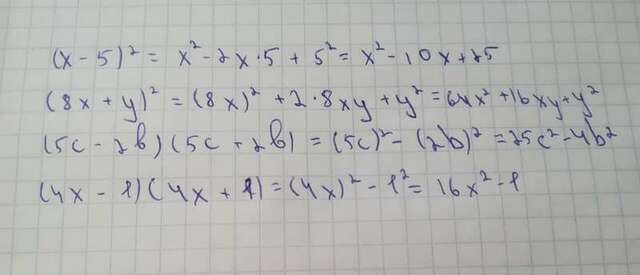 (x - 5)² = x² - 2x·5 + 5² = x² - 10x + 25
(8x + y)² = (8x)² + 2·8xy + y² = 64x² + 16xy + y²
(5c - 2b)(5c + 2b) = (5c)² - (2b)² = 25c² - 4b²
(4x - 1)(4x + 1) = (4x)² - 1² = 16x² - 1